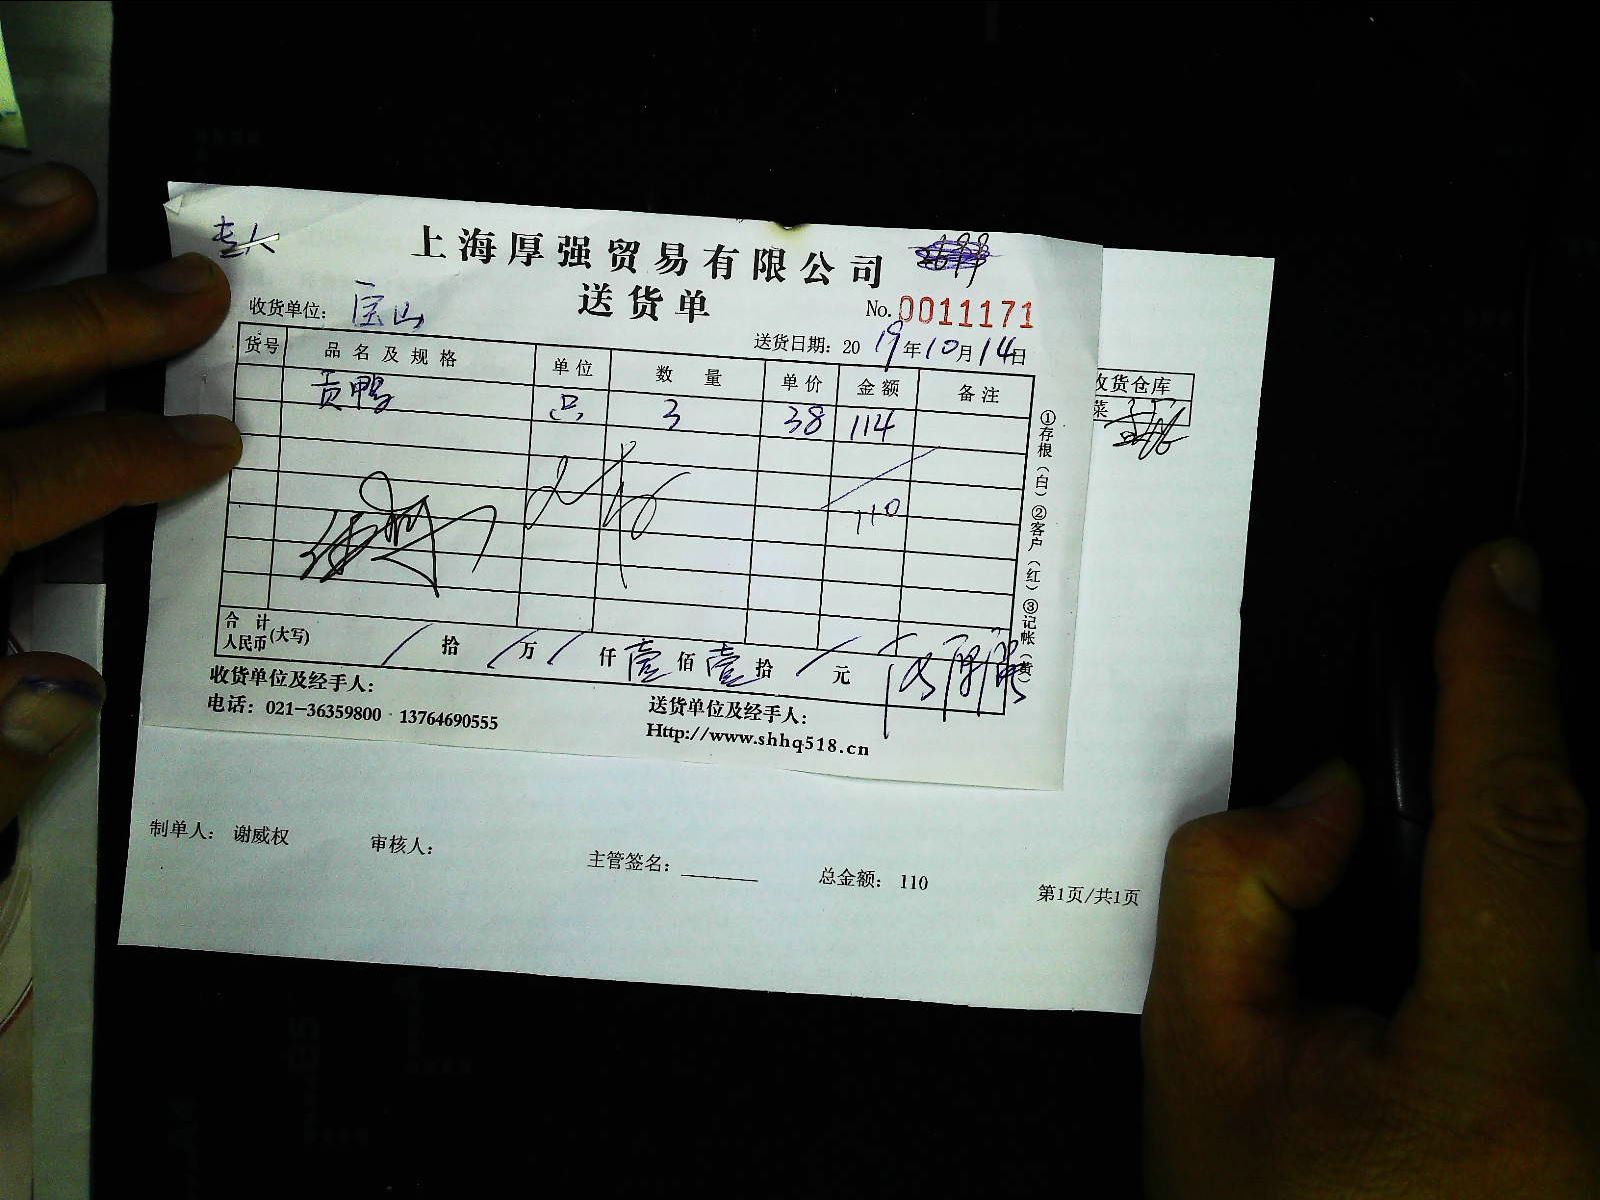 上海厚强贸易有限公司
送货单
No. 0011171
收货单位： 宝山
送货日期： 2019年10月14日
货号 品名及规格 单位 数量 单价 金额 备注
贡鸭 只 3 38 114
110
合计人民币(大写) 拾 万 仟 壹 佰 壹 拾 元
收货单位及经手人：
送货单位及经手人：
电话：021-36359800 13764690555
Http://www.shhq518.cn
①存根（白）②客户（红）③记帐（黄）
收货仓库
菜
制单人： 谢威权 审核人： 主管签名： 总金额： 110
第1页/共1页